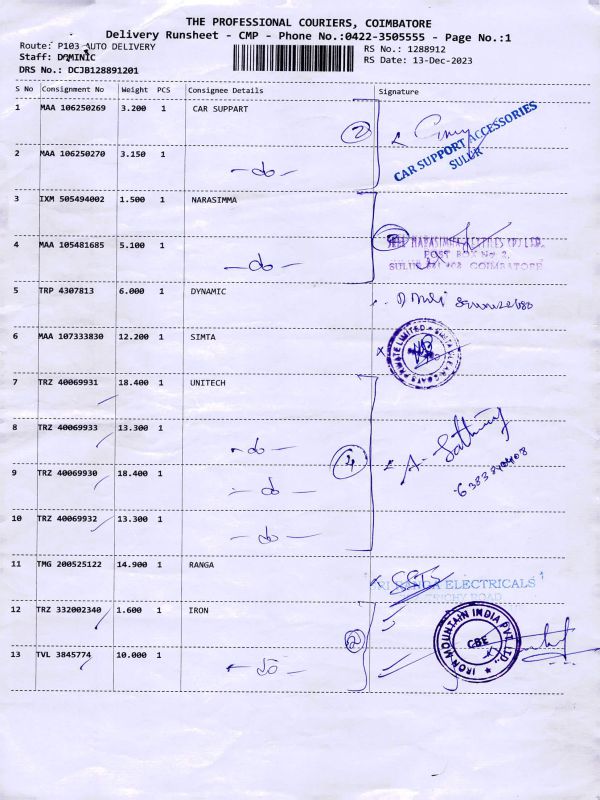 THE PROFESSIONAL COURIERS, COIMBATORE
Delivery Runsheet - CMP - Phone No.:0422-3505555 - Page No.:1
Route: P103 AUTO DELIVERY RS No.: 1288912
Staff: DOMINIC RS Date: 13-Dec-2023
DRS No.: DCJB128891201
S No Consignment No Weight PCS Consignee Details Signature
1 MAA 106250269 3.200 1 CAR SUPPART
2
CAR SUPPORT ACCESSORIES
SULUR
2 MAA 106250270 3.150 1 -do-
3 IXM 505494002 1.500 1 NARASIMMA
NARASIMMA TEXTILES
POST BOX No 2,
SULUR COIMBATORE
4 MAA 105481685 5.100 1 -do-
5 TRP 4307813 6.000 1 DYNAMIC
6 MAA 107333830 12.200 1 SIMTA
PRIVATE LIMITED
7 TRZ 40069931 18.400 1 UNITECH
8 TRZ 40069933 13.300 1 -do-
4
A. Sathing
9 TRZ 40069930 18.400 1 -do-
10 TRZ 40069932 13.300 1 -do-
11 TMG 200525122 14.900 1 RANGA
ELECTRICALS
TRICHY ROAD
12 TRZ 332002340 1.600 1 IRON
2
IRON MOUNTAIN INDIA PVT. LTD.
CBE
13 TVL 3845774 10.000 1 -do-